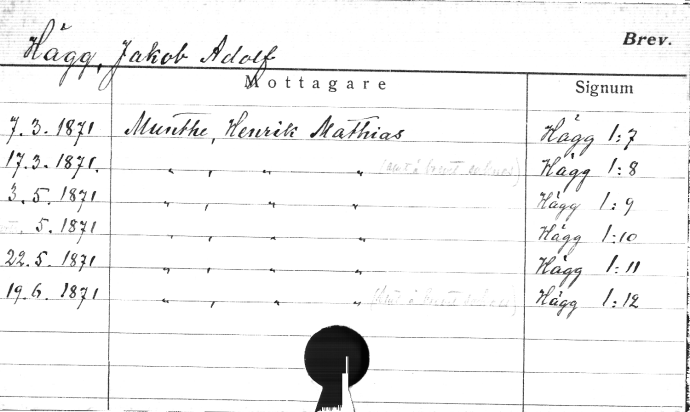 Brev.
Hägg, Jakob Adolf
Mottagare Signum
7.3.1871 Munthe, Henrik Mathias Hägg 1:7
17.3.1871. " , " " Hägg 1:8
3.5.1871 " , " " Hägg 1:9
5.1871 " , " " Hägg 1:10
22.5.1871 " , " " Hägg 1:11
19.6.1871 " , " " Hägg 1:12